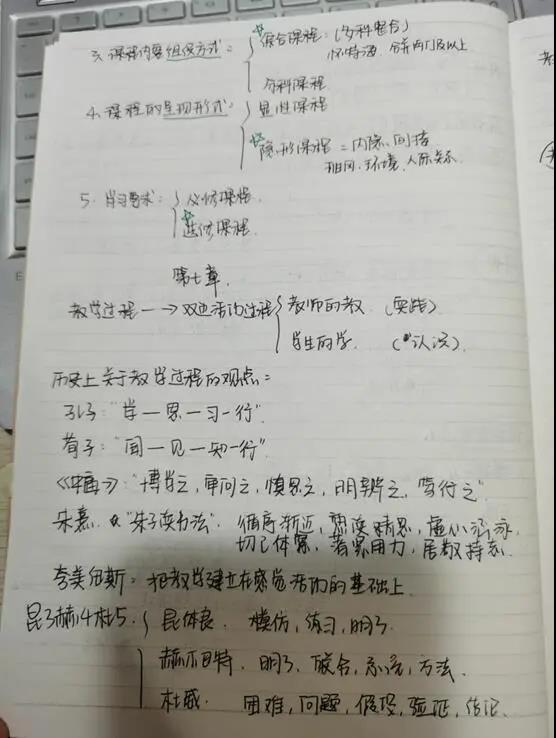 3. 课程内容组织方式：
综合课程：（多科整合）
怀特海 合并两门及以上
分科课程
4. 课程的呈现形式：
显性课程
隐形课程 = 内隐、间接
校风、环境、人际关系
5. 学习要求：
必修课程
选修课程
第七章
教学过程 —→ 双边活动过程
教师的教 （实践）
学生的学 （认识）
历史上关于教学过程的观点：
孔子：“学—思—习—行”
荀子：“闻—见—知—行”
《中庸》：“博学之，审问之，慎思之，明辨之，笃行之”
朱熹 “朱子读书法” 循序渐近，熟读精思，虚心涵泳，
切己体察，着紧用力，居敬持志
夸美纽斯：把教学建立在感觉活动的基础上
昆3赫4杜5
昆体良 模仿，练习，明了
赫尔巴特 明了、联合，系统，方法
杜威 困难，问题，假设，验证，结论